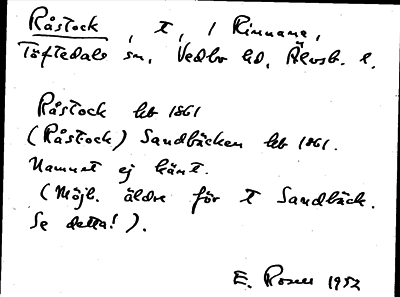 Råstock, t, / Rinnane,
Töftedals sn, Vedbo hd, Älvsb. l.
Råstock hb 1861
(Råstock) Sandbäcken hb 1861.
Namnet ej känt.
(Möjl. äldre för t Sandbäck.
Se detta!).
E. Rosell 1952